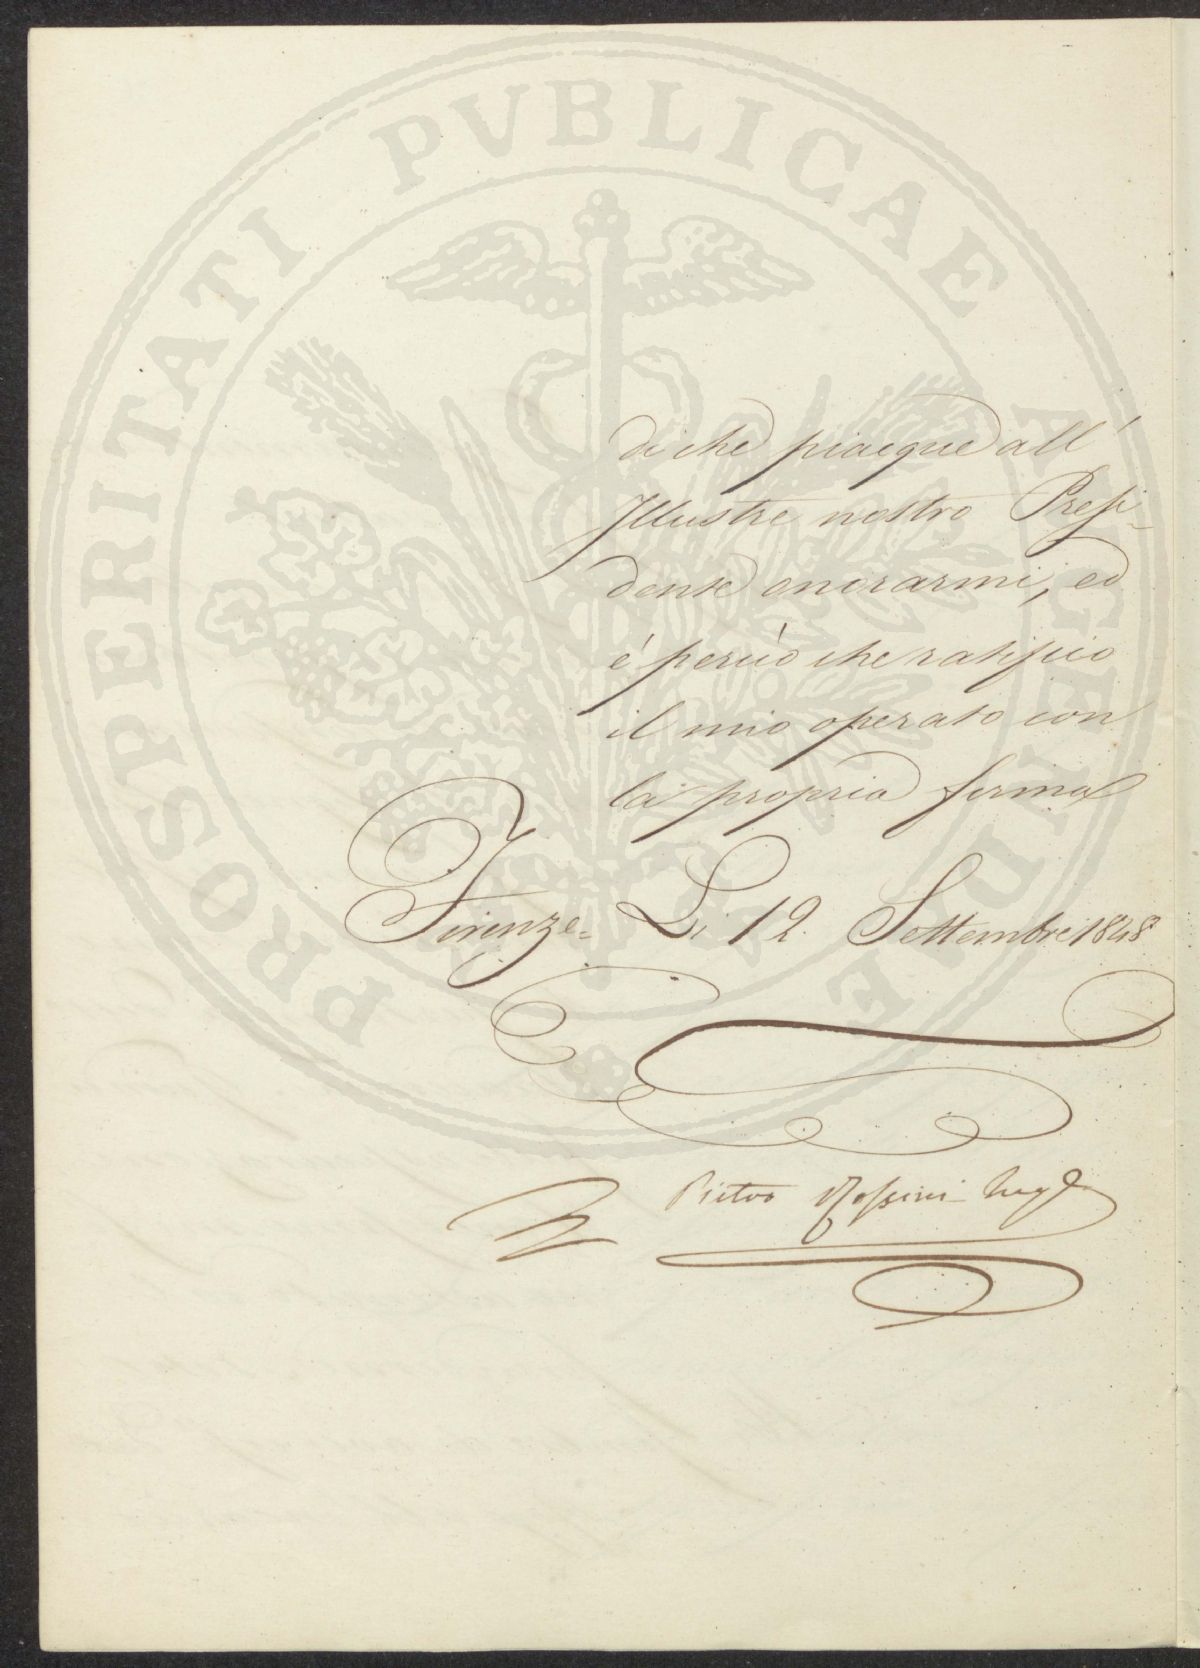 PROSPERITATI PVBLICAE AVGENDAE
di che piacque all'
Illustre nostro Presi-
dente onorarmi, ed
è perciò che ratifico
il mio operato con
la propria firma
Firenze= Li 12. Settembre 1848
Pietro Rossini